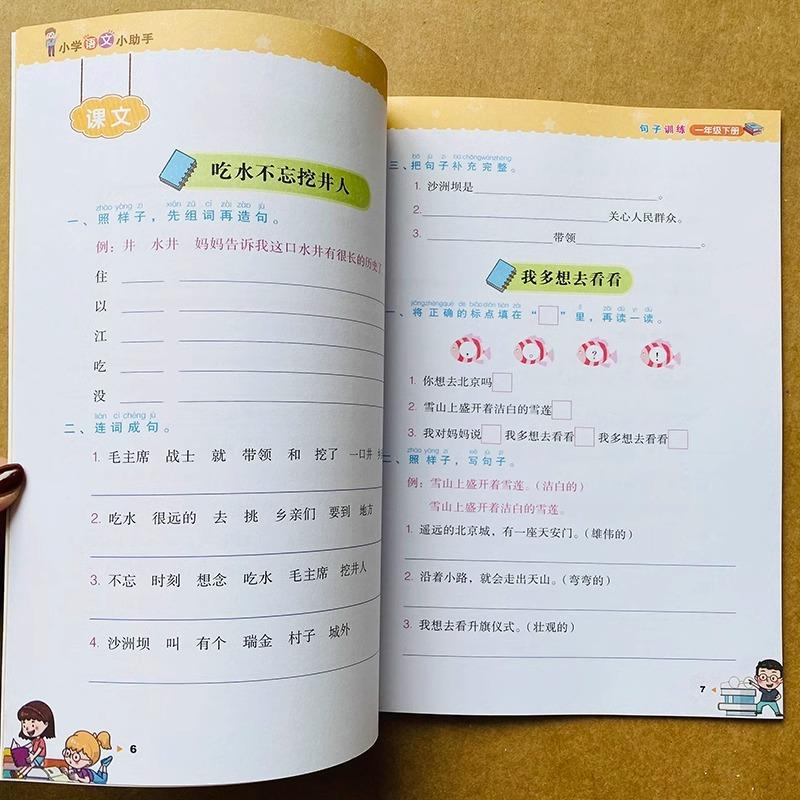 小学语文小助手
课文
吃水不忘挖井人
zhào yàng zi xiān zǔ cí zài zào jù
一、照样子，先组词再造句。
例：井 水井 妈妈告诉我这口水井有很长的历史了
住
以
江
吃
没
lián cí chéng jù
二、连词成句。
1. 毛主席 战士 就 带领 和 挖了 一口井
2. 吃水 很远的 去 挑 乡亲们 要到 地方
3. 不忘 时刻 想念 吃水 毛主席 挖井人
4. 沙洲坝 叫 有个 瑞金 村子 城外
6
句子训练 一年级下册
bǎ jù zi bǔ chōng wán zhěng
三、把句子补充完整。
1. 沙洲坝是。
2. 关心人民群众。
3. 带领。
我多想去看看
jiāng zhèng què de biāo diǎn tián zài lǐ zài dú yì dú
一、将正确的标点填在“□”里，再读一读。
， 。 ？ ！
1. 你想去北京吗□
2. 雪山上盛开着洁白的雪莲□
3. 我对妈妈说□我多想去看看□我多想去看看□
zhào yàng zi xiě jù zi
二、照样子，写句子。
例：雪山上盛开着雪莲。（洁白的）
雪山上盛开着洁白的雪莲。
1. 遥远的北京城，有一座天安门。（雄伟的）
2. 沿着小路，就会走出天山。（弯弯的）
3. 我想去看升旗仪式。（壮观的）
7